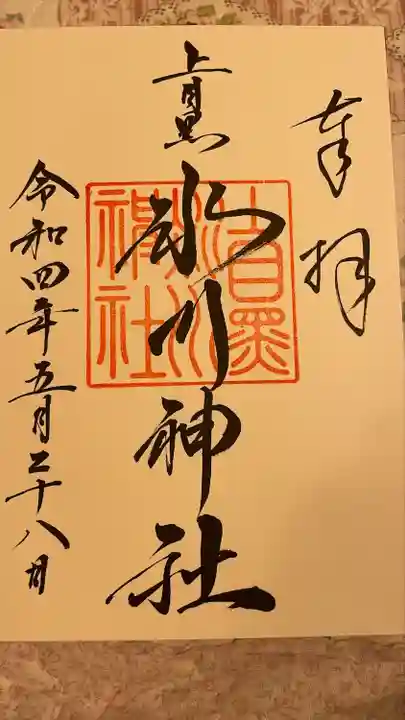 奉拝
上目黒
氷川神社
上目黒氷川神社
令和四年五月二十八日